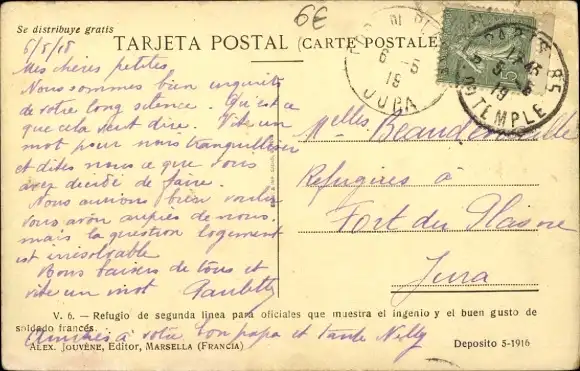 Se distribuye gratis
6€
TARJETA POSTAL (CARTE POSTALE
6/5/18
Mes chères petites
Nous sommes bien inquiets
de votre long silence. Qu'est ce
que cela veut dire. Vite un
mot pour nous tranquilliser
et dites nous ce que vous
avez décidé de faire.
Nous aurions bien voulu
vous avoir auprès de nous.
mais la question logement
est insoluble
Bons baisers de tous et
vite un mot Paulette
Amitiés à votre bon papa et tante Nelly
6 - 5
18
JURA
PARIS 85
5 - 5
TEMPLE
15
Melles
Refugiées à
Fort du Plasne
Jura
V. 6. – Refugio de segunda linea para oficiales que muestra el ingenio y el buen gusto de
soldado francés.
ALEX. JOUVÈNE, Editor, MARSELLA (FRANCIA)
Deposito 5-1916